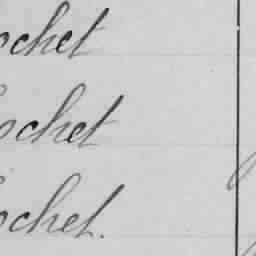 ochet
ochet
ochet.